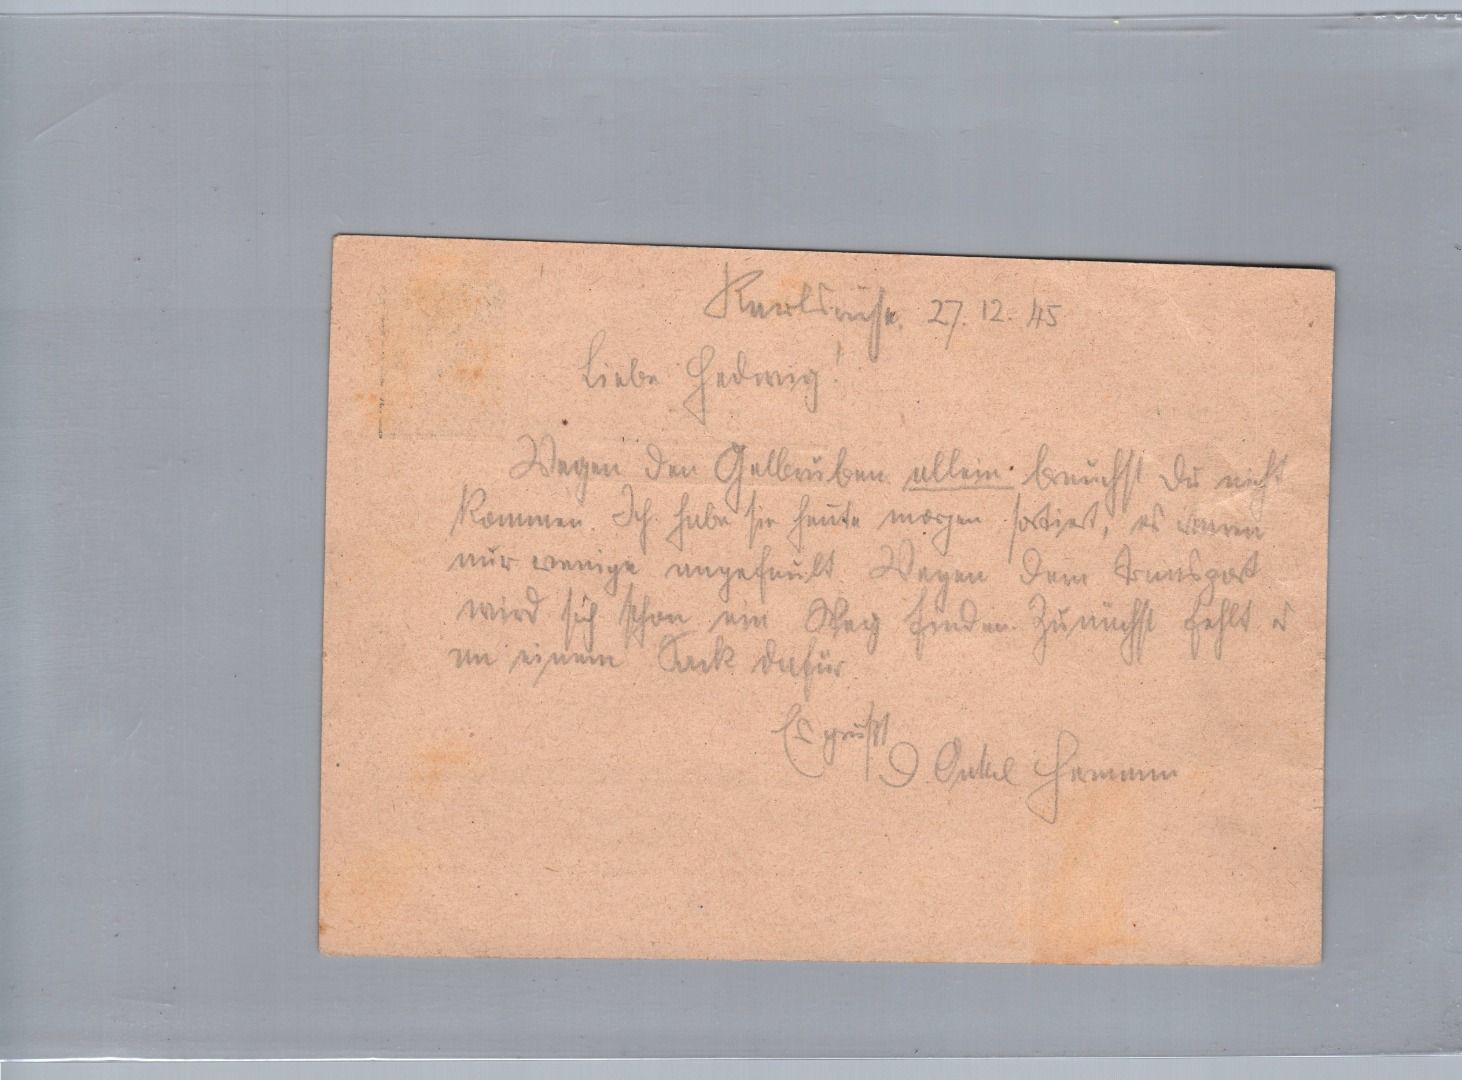 Karlsruhe, 27.12.45
Liebe Hedwig!
Wegen den Gelbrüben allein brauchst Du nicht
kommen. Ich habe sie heute morgen sortiert, es waren
nur wenige angefault. Wegen dem Transport
wird sich schon ein Weg finden. Zunächst fehlt es
an einem Sack dafür.
Es grüßt
D. Onkel Hermann